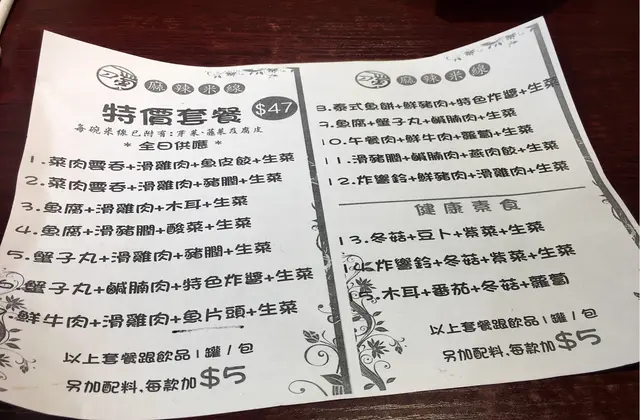 麻辣米線
特價套餐 $47
每碗米線已附有:芽菜,韮菜及腐皮
* 全日供應 *
1.菜肉雲吞+滑雞肉+魚皮餃+生菜
2.菜肉雲吞+滑雞肉+豬膶+生菜
3.魚腐+滑雞肉+木耳+生菜
4.魚腐+滑豬膶+酸菜+生菜
5.蟹子丸+滑雞肉+豬膶+生菜
6.蟹子丸+鹹腩肉+特色炸醬+生菜
鮮牛肉+滑雞肉+魚片頭+生菜
以上套餐跟飲品1罐/包
另加配料,每款加$5
麻辣米線
8.泰式魚餅+鮮豬肉+特色炸醬+生菜
9.魚腐+蟹子丸+鹹腩肉+生菜
10.午餐肉+鮮牛肉+蘿蔔+生菜
11.滑豬膶+鹹腩肉+燕肉餃+生菜
12.炸響鈴+鮮豬肉+滑雞肉+生菜
健康素食
13.冬菇+豆卜+紫菜+生菜
14.炸響鈴+冬菇+紫菜+生菜
15.木耳+番茄+冬菇+蘿蔔
以上套餐跟飲品1罐/包
另加配料,每款加$5